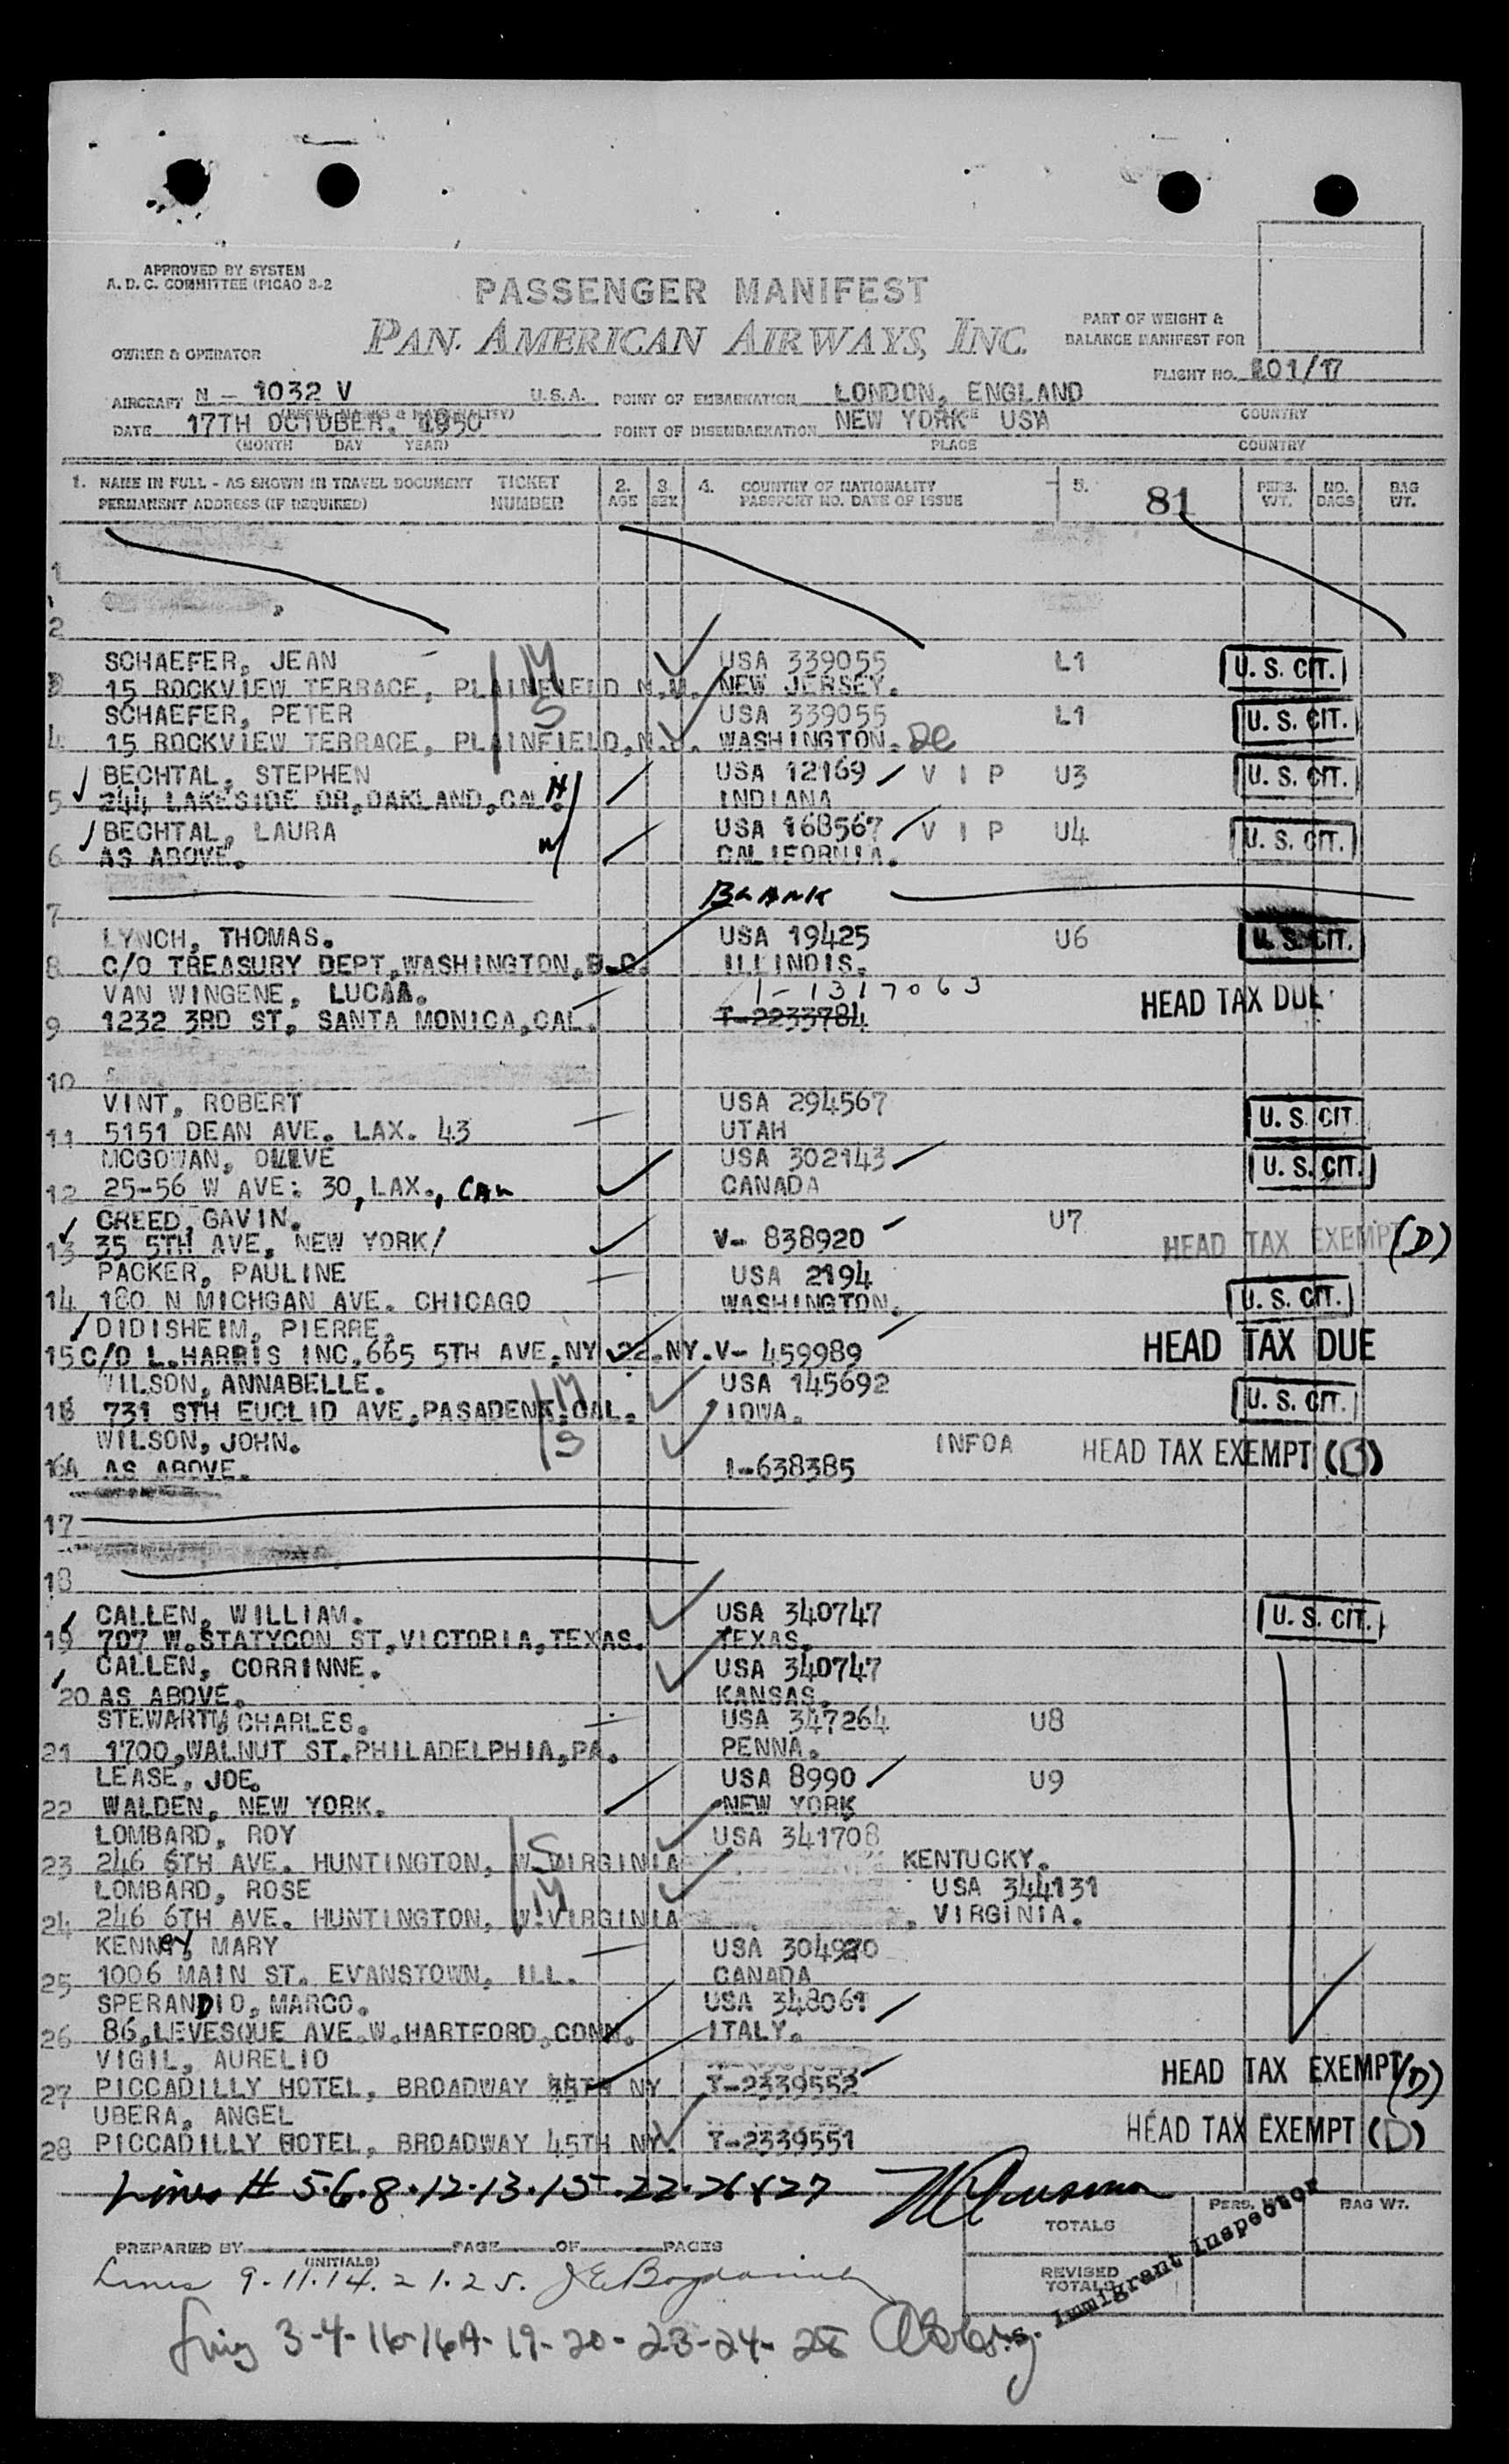 APPROVED BY SYSTEM
A. D. C. COMMITTEE (PICAO 3-2
PASSENGER MANIFEST
PAN AMERICAN AIRWAYS, INC.
PART OF WEIGHT &
BALANCE MANIFEST FOR
OWNER & OPERATOR
FLIGHT NO. 101/17
AIRCRAFT N - 1032 V U.S.A. POINT OF EMBARKATION LONDON, ENGLAND
DATE 17TH OCTOBER. 1950 POINT OF DISEMBARKATION NEW YORK USA COUNTRY
(MONTH DAY YEAR) PLACE COUNTRY
1. NAME IN FULL - AS SHOWN IN TRAVEL DOCUMENT TICKET 2. 3. 4. COUNTRY OF NATIONALITY 5. 81 PERS. NO. BAG
PERMANENT ADDRESS (IF REQUIRED) NUMBER AGE SEX PASSPORT NO. DATE OF ISSUE WT. BAGS WT.
1
2
SCHAEFER, JEAN M USA 339055 L1 U. S. CIT.
3 15 ROCKVIEW TERRACE, PLAINFIELD N.J. NEW JERSEY.
SCHAEFER, PETER S USA 339055 L1 U. S. CIT.
4 15 ROCKVIEW TERRACE, PLAINFIELD, N.J. WASHINGTON. DC
BECHTAL, STEPHEN H USA 12169 V I P U3 U. S. CIT.
5 244 LAKESIDE DR, OAKLAND, CAL. INDIANA
BECHTAL, LAURA W USA 168567 V I P U4 U. S. CIT.
6 AS ABOVE. CALIFORNIA.
7 BLANK
LYNCH, THOMAS. USA 19425 U6 U. S. CIT.
8 C/O TREASURY DEPT, WASHINGTON, D.C. ILLINOIS.
VAN WINGENE, LUCAA. 1-1317063 HEAD TAX DUE
9 1232 3RD ST, SANTA MONICA, CAL. T-2233784
10
VINT, ROBERT USA 294567 U. S. CIT
11 5151 DEAN AVE. LAX. 43 UTAH
MCGOWAN, OLIVE USA 302143 U. S. CIT.
12 25-56 W AVE: 30, LAX., CAL CANADA
CREED, GAVIN. U7
13 35 5TH AVE, NEW YORK/ V- 838920 HEAD TAX EXEMPT (D)
PACKER, PAULINE USA 2194
14 180 N MICHGAN AVE. CHICAGO WASHINGTON. U. S. CIT.
DIDISHEIM, PIERRE.
15 C/O L. HARRIS INC, 665 5TH AVE, NY 22. NY. V- 459989 HEAD TAX DUE
WILSON, ANNABELLE. M USA 145692 U. S. CIT.
16 731 STH EUCLID AVE, PASADENA, CAL. IOWA.
WILSON, JOHN. S INFOA HEAD TAX EXEMPT (B)
16A AS ABOVE. I-638385
17
18
CALLEN, WILLIAM. USA 340747 U. S. CIT.
19 707 W. STATYCON ST, VICTORIA, TEXAS. TEXAS.
CALLEN, CORRINNE. USA 340747
20 AS ABOVE. KANSAS.
STEWART, CHARLES. USA 347264 U8
21 1700, WALNUT ST. PHILADELPHIA, PA. PENNA.
LEASE, JOE. USA 8990 U9
22 WALDEN, NEW YORK. NEW YORK
LOMBARD, ROY S USA 341708
23 246 6TH AVE. HUNTINGTON, W. VIRGINIA KENTUCKY.
LOMBARD, ROSE M USA 344131
24 246 6TH AVE. HUNTINGTON, W. VIRGINIA VIRGINIA.
KENNEY, MARY USA 304920
25 1006 MAIN ST. EVANSTOWN, ILL. CANADA
SPERANDIO, MARCO. USA 348061
26 86, LEVESQUE AVE. W. HARTFORD, CONN. ITALY.
VIGIL, AURELIO HEAD TAX EXEMPT (D)
27 PICCADILLY HOTEL, BROADWAY 45TH NY T-2339552
UBERA, ANGEL HEAD TAX EXEMPT (D)
28 PICCADILLY HOTEL, BROADWAY 45TH NY. T-2339551
Lines # 5.6.8.12.13.15.22.26 & 27
TOTALS PERS. BAG WT.
PREPARED BY PAGE OF PAGES
(INITIALS)
REVISED
TOTALS
Immigrant Inspector
Lines 9.11.14.21.25.
3-4-16-16A-19-20-23-24-28